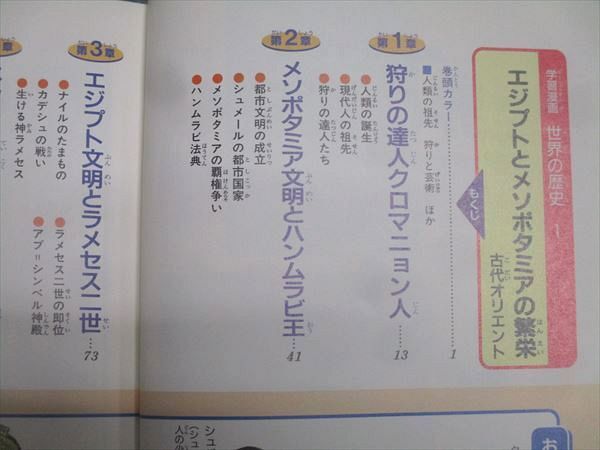 学習漫画 世界の歴史 1
エジプトとメソポタミアの繁栄
古代オリエント
もくじ
巻頭カラー…………1
■人類の祖先 狩りと芸術 ほか
第1章
狩りの達人クロマニョン人……13
●人類の誕生
●現代人の祖先
●狩りの達人たち
第2章
メソポタミア文明とハンムラビ王…41
●都市文明の成立
●シュメールの都市国家
●メソポタミアの覇権争い
●ハンムラビ法典
第3章
エジプト文明とラメセス二世…73
●ナイルのたまもの
●カデシュの戦い
●生ける神ラメセス
●ラメセス二世の即位
●アブ＝シンベル神殿
章
お
シュ
(シュ
人の